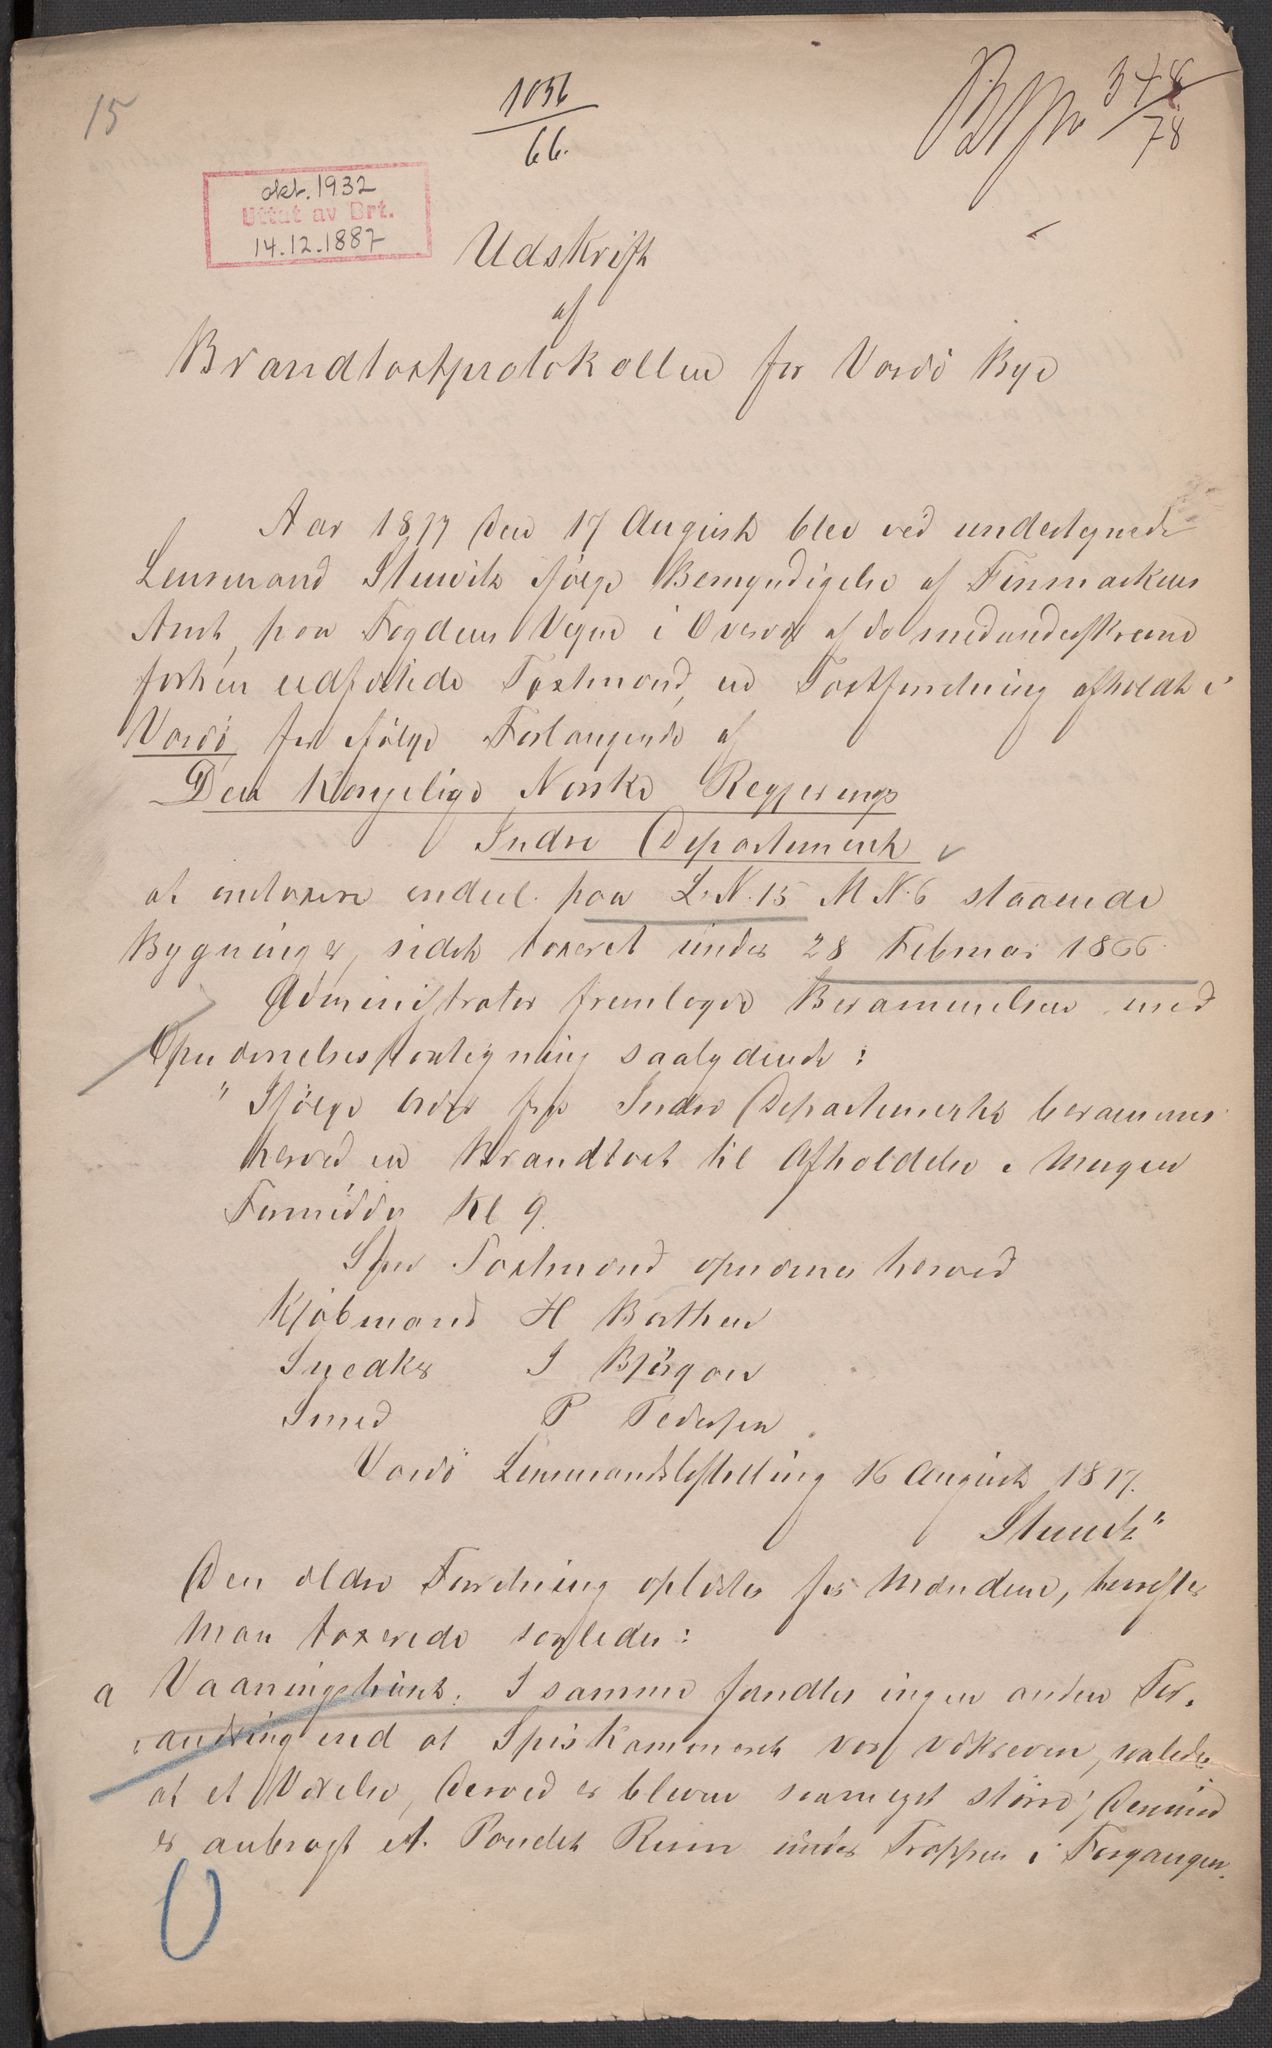 15
1036
66.
348
78
okt. 1932
Uttat av Brt.
14.12.1887
Udskrift
af
Brandtaxtprotokollen for Vardö Bye
Aar 1877 den 17 August blev ved undertegnede
Lensmand Stuwitz ifölge Bemyndigelse af Finmarkens
Amt, paa Fogdens Vegne i Overvær af de medunderskrevne
forhen edfæstede Taxtmænd, en Taxtforretning afholdt i
Vardö for ifölge Forlangende af
Den Kongelige Norske Regjerings
Indre Departement
at omtaxere endeel paa L.N. 15 M N. 6 staaende
Bygninger, sidst taxeret under 28 Februar 1866.
Administrator fremlagde Berammelsen med
Opnævnelsestextegning saalydende:
"Ifölge Ordre fra Indre Departementet berammes
herved en Brandtaxt til Afholdelse i Morgen
Formiddag Kl 9.
Som Taxtmænd opnævnes herved
Kjöbmand H Barthen
Snedker I Björgan
Smed P Pedersen
Vardö Lensmandsbestilling 16 August 1877.
Stuwitz"
Den ældre Forretning oplæstes for Mændene, hvorefter
man taxerede saaledes:
a Vaaningshuset. I samme fandtes ingen anden For-
andring end at Spiskammeret var udkreven, saaledes
at et Værelse, derved er bleven saameget större; desuden
er anbragt et Pandet Rum under Trappen i Forgangen.